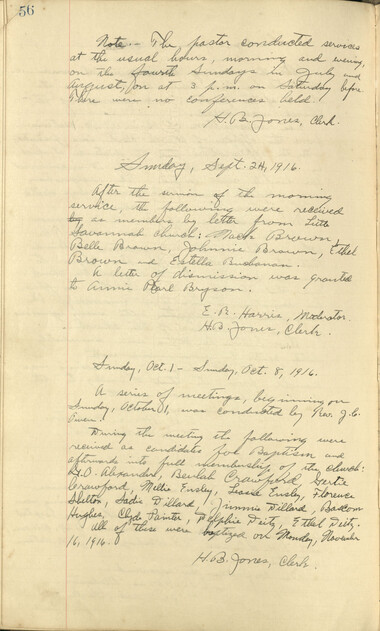 56
Note:- The pastor conducted services
at the usual hours, morning and evening,
on the fourth Sundays in July and
August, on at 3 p.m. on Saturday before
There were no conferences held.
H.B. Jones, Clerk.
Sunday, Sept. 24, 1916.
After the sermon of the morning
service, the following were received
as members by letter from
Savannah Church: Brown,
Belle Brown, Johnnie Brown, Ethel
Brown and Estella Buchanan.
A letter of dismission was granted
to Annie Pearl Bryson.
E.R. Harris, Moderator.
H.B. Jones, Clerk.
Sunday, Oct. 1 - Sunday, Oct. 8, 1916.
A series of meetings, beginning on
Sunday, October 1, was conducted by Rev. J.C.
Owen.
During the meeting the following were
received as candidates for Baptism and
afterwards into full membership of the church:
D.O. Alexander, Beulah Crawford, Gertie
Crawford, Mettie Ensley, Jessie Ensley, Florence
Hutton, Sadie Dillard, Jimmie Dillard, Bascom
Hughes, Clyde Painter, Delphia Deitz, Ethel Deitz.
All of these were baptized on Monday, November
16, 1916.
H.B. Jones, Clerk.